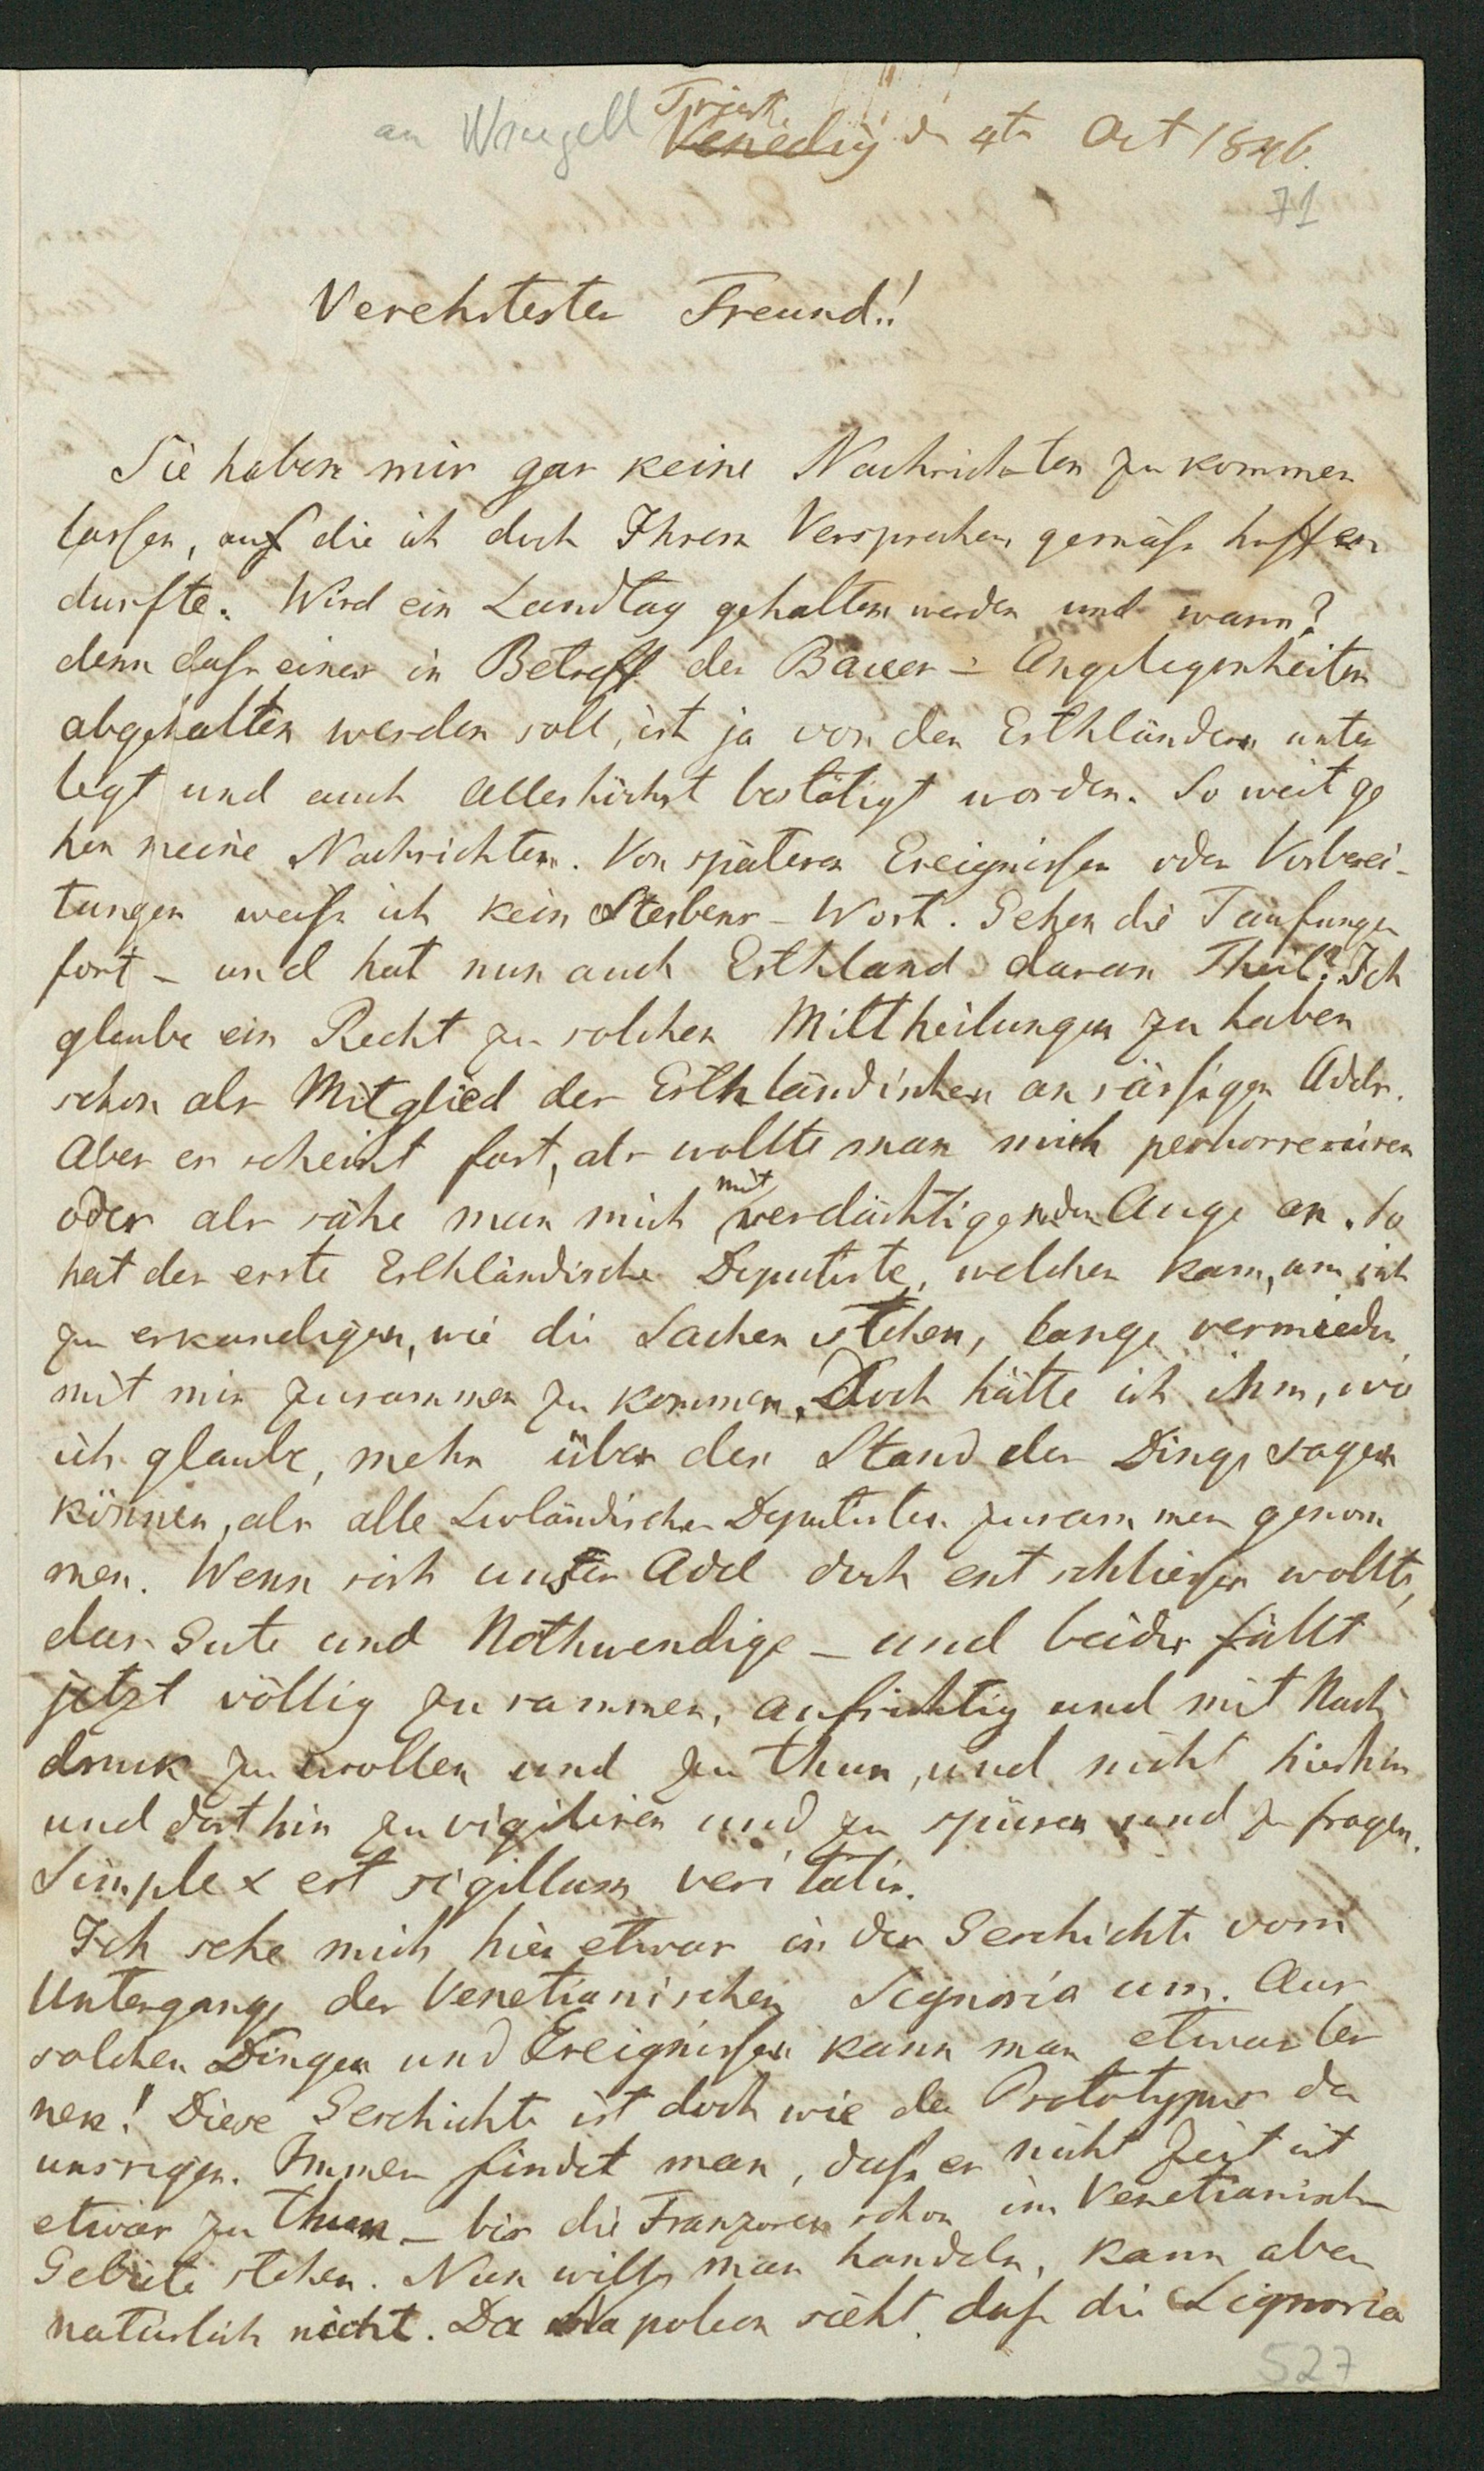 an Wrangell Triest Venedig d 4ten Oct 1846.
71
Verehrtester Freund!
Sie haben mir gar keine Nachrichten zu kommen
lassen, auf die ich doch Ihrem Versprechen gemäss hoffen
durfte. Wird ein Landtag gehalten werden und wann?
denn dass einer in Betreff der Bauer-Angelegenheiten
abgehalten werden soll, ist ja von den Esthländern unter
legt und auch Allerhöchst bestätigt worden. So weit ge
hen meine Nachrichten. Von spätern Ereignissen oder Vorberei-
tungen weiss ich kein Sterbens-Wort. Gehen die Taufungen
fort – und hat nun auch Esthland daran Theil? Ich
glaube ein Recht zu solchen Mittheilungen zu haben
schon als Mitglied des Esthländischen ansässigen Adels.
Aber es scheint fast, als wollte man mich perhorresciren
oder als sähe man mich mit verdächtigenden Auge an. So
hat der erste Esthländische Deputirte, welcher kam, um sich
zu erkundigen, wie die Sachen stehen, lange vermieden,
mit mir zusammen zu kommen. Doch hätte ich ihm, wie
ich glaube, mehr über den Stand der Dinge sagen
können, als alle Livländischen Deputirten zusammen genom
men. Wenn sich unser Adel doch entschliessen wollte,
das Gute und Nothwendige – und beides fällt
jetzt völlig zusammen, aufrichtig und mit Nach
druck zu wollen und zu thun, und nicht hierhin
und dorthin zu vigiliren und zu spüren und zu fragen.
Simplex est sigillum veritatis.
Ich sehe mich hier etwas in der Geschichte vom
Untergange der Venetianischen Signoria um. Aus
solchen Dingen und Ereignissen kann man etwas ler
nen! Diese Geschichte ist doch wie der Prototypus der
unsrigen. Immer findet man, dass es nicht Zeit ist
etwas zu thun – bis die Franzosen schon im Venetianischen
Gebiete stehen. Nun will man handeln, kann aber
natürlich nicht. Da Napoleon sieht, dass die Signoria
527